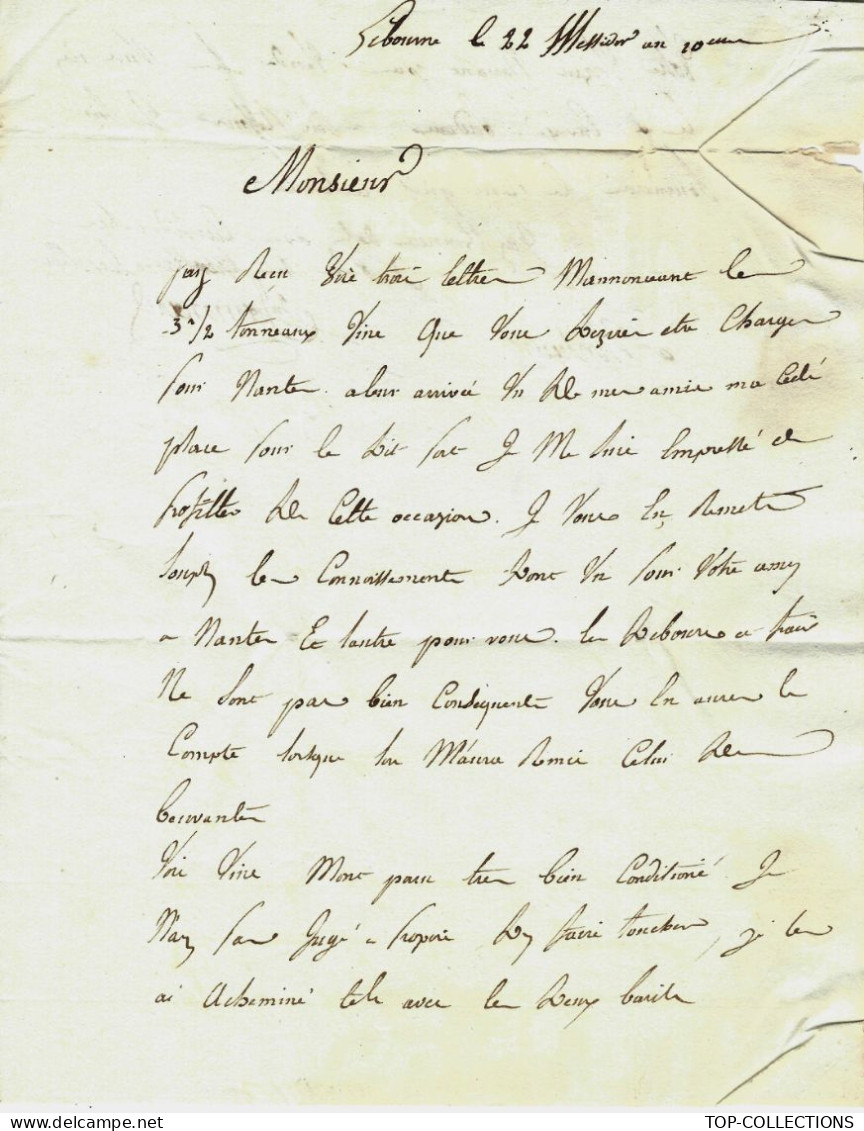 Libourne le 22 Messidor an 10eme
Monsieur
jay Recu Vos trois lettres Mannonceant les
3 1/2 tonneaux Vins Que Vous Deziriés etre Charger
pour Nantes. a leur arrivée Un De mes amis ma Cédé
place pour le Dit port Je Me suis Empressé de
profitter De Cette occazion. Je Vous En Remets
les Connoissements Dont Un pour Votre amy
a Nantes Et lautre pour vous. les Debources et frais
Ne Sont pas bien Conséquents Vous En aurez le
Compte lorsque lon Maura Remis Celui De
Vos Vins Mont paru tres bien Conditionés Je
N'ay pas Jugé a Propos Dy faire toucher, je les
ai Acheminé tels avec les Deux barils
TOP-COLLECTIONS